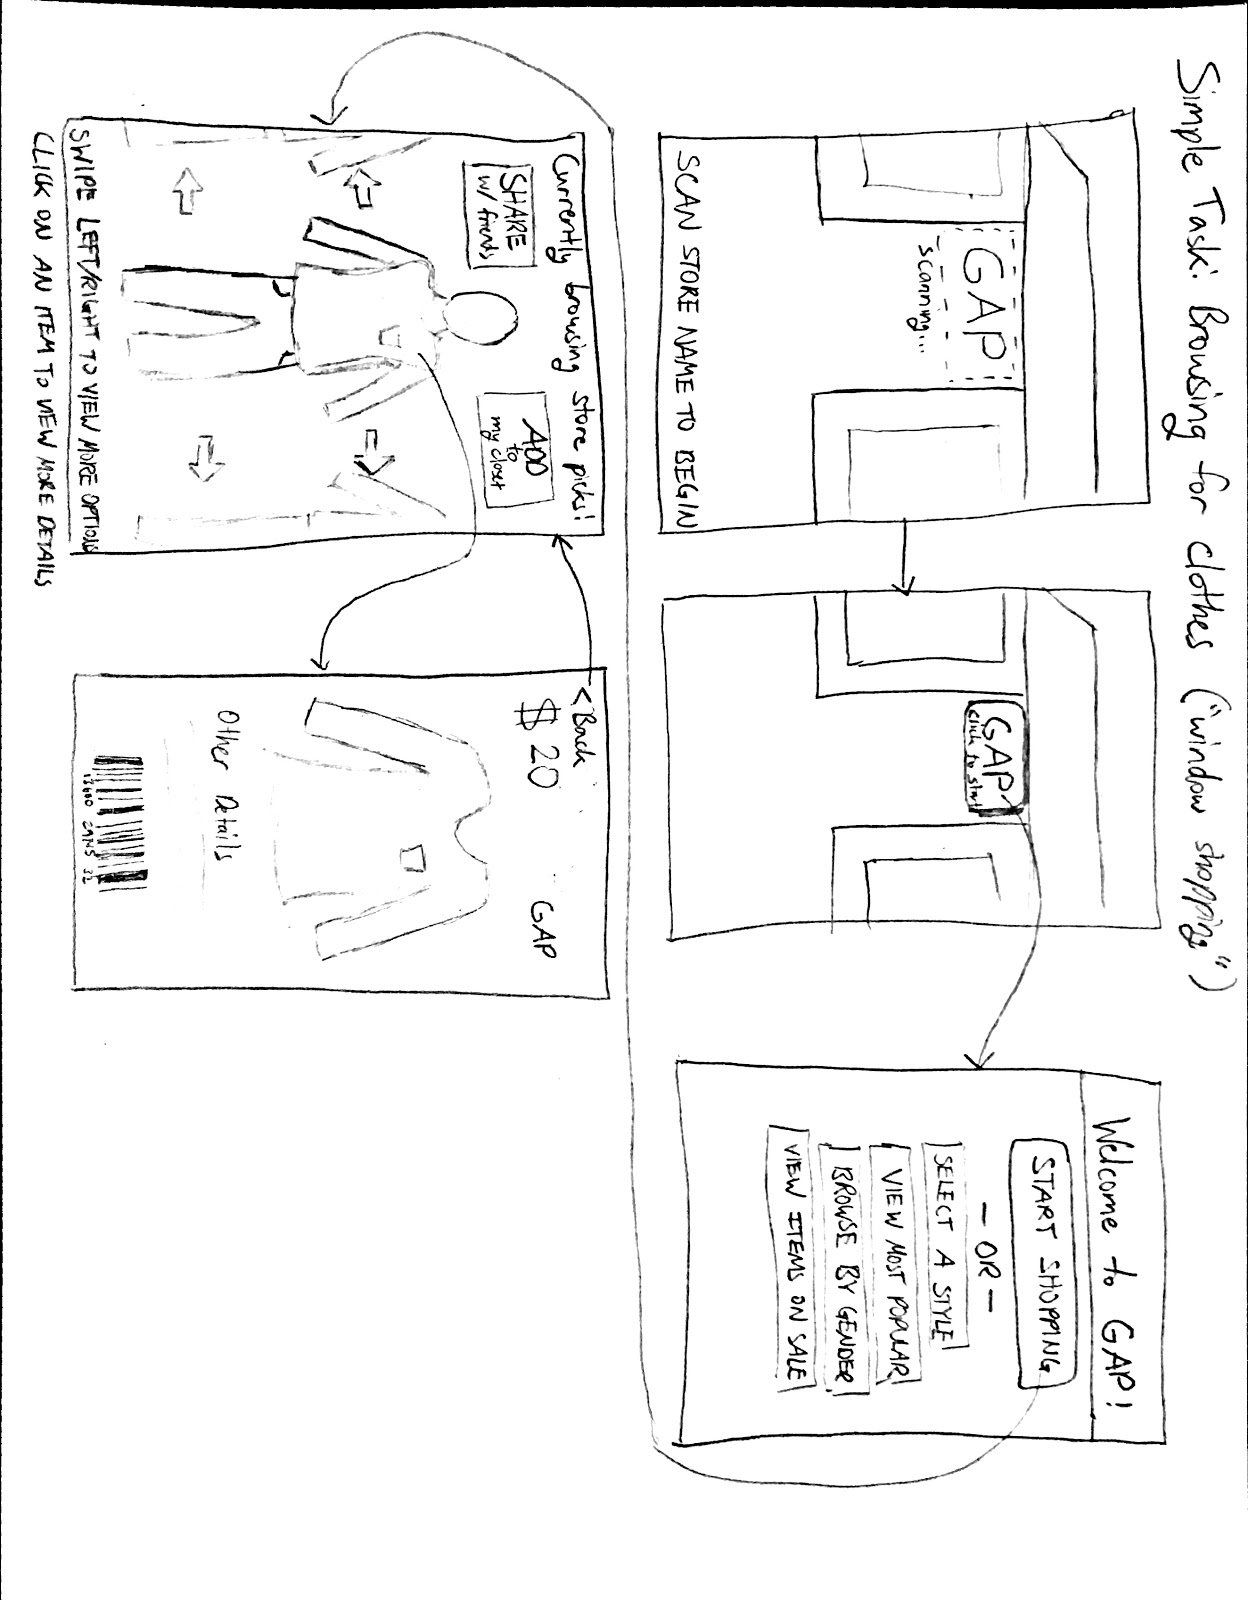 Simple Task: Browsing for clothes ("window shopping")
GAP
scanning...
SCAN STORE NAME TO BEGIN
GAP
click to start
Welcome to GAP!
START SHOPPING
- OR -
SELECT A STYLE
VIEW MOST POPULAR
BROWSE BY GENDER
VIEW ITEMS ON SALE
Currently browsing store picks!
SHARE
w/ friends
ADD
to
my closet
SWIPE LEFT/RIGHT TO VIEW MORE OPTIONS
CLICK ON AN ITEM TO VIEW MORE DETAILS
< Back
$ 20
GAP
Other Details